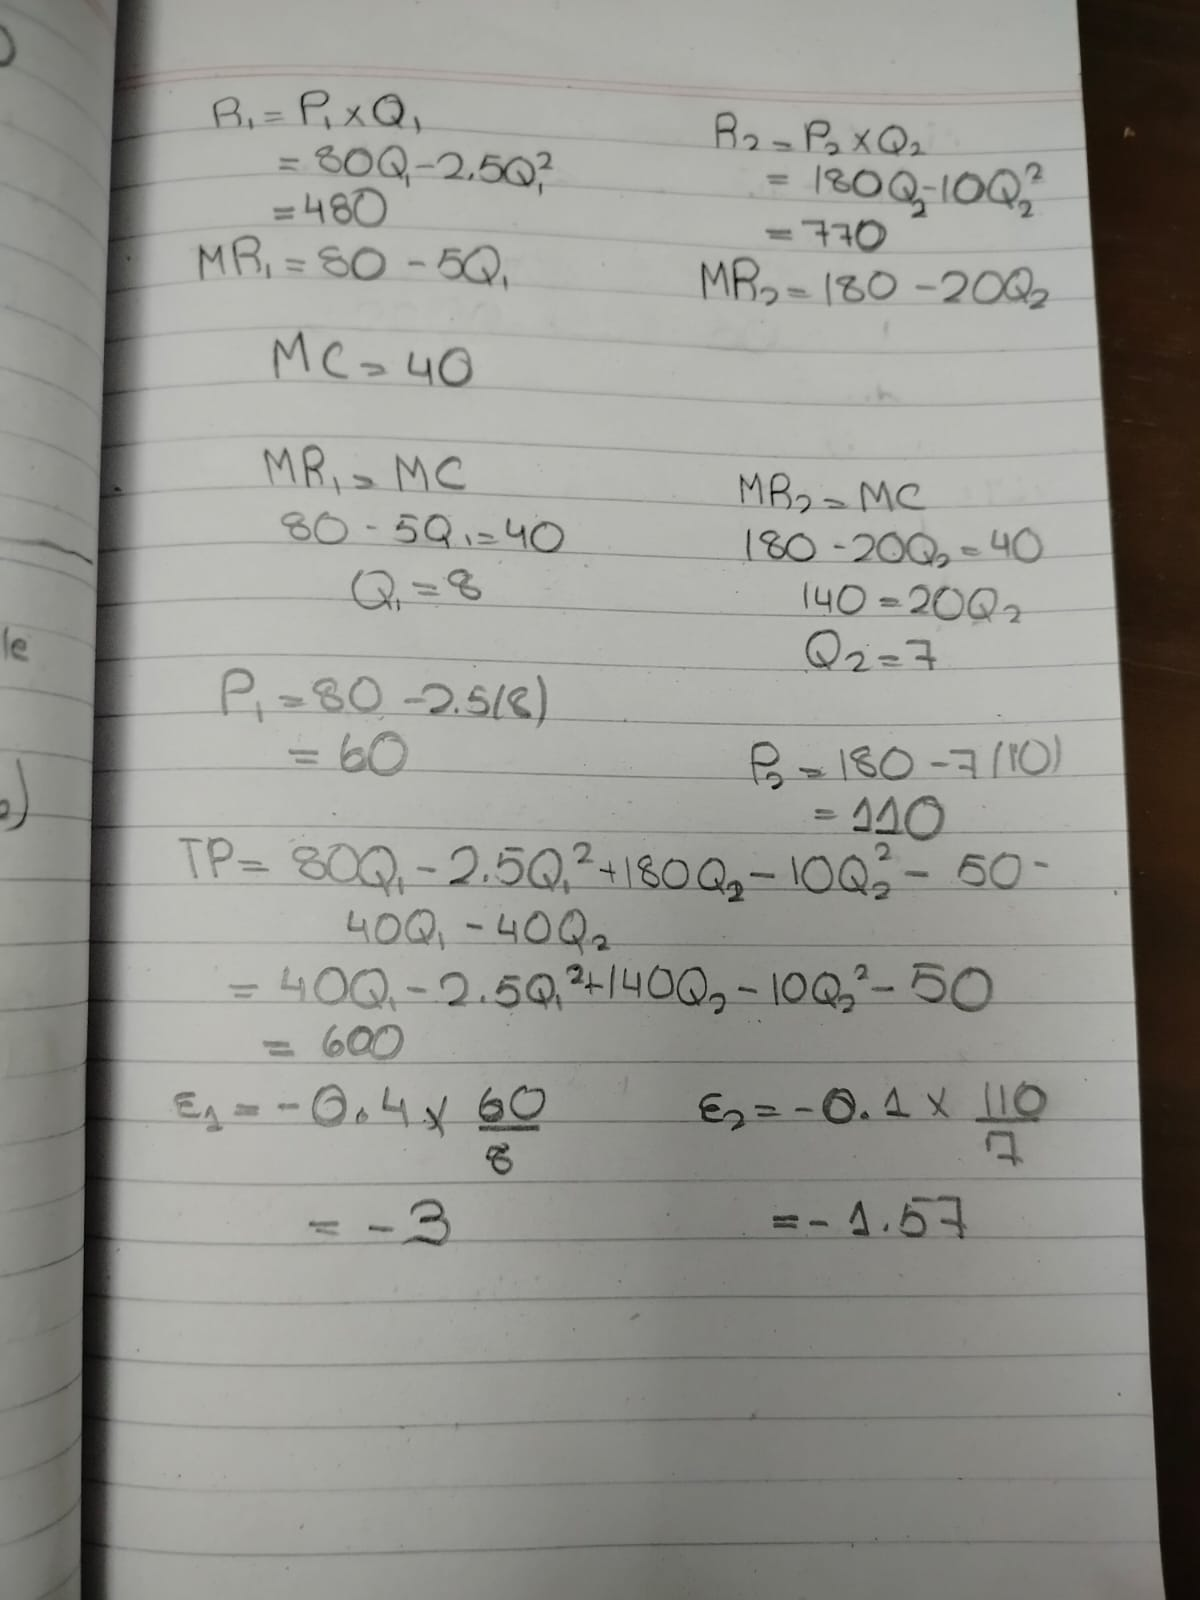 R₁ = P₁ × Q₁
= 80Q₁ - 2.5Q₁²
= 480
MR₁ = 80 - 5Q₁
R₂ = P₂ × Q₂
= 180Q₂ - 10Q₂²
= 770
MR₂ = 180 - 20Q₂
MC = 40
MR₁ = MC
80 - 5Q₁ = 40
Q₁ = 8
P₁ = 80 - 2.5(8)
= 60
MR₂ = MC
180 - 20Q₂ = 40
140 = 20Q₂
Q₂ = 7
P₂ = 180 - 7(10)
= 110
TP = 80Q₁ - 2.5Q₁² + 180Q₂ - 10Q₂² - 50 -
40Q₁ - 40Q₂
= 40Q₁ - 2.5Q₁² + 140Q₂ - 10Q₂² - 50
= 600
ε₁ = -0.4 × 60/8
= -3
ε₂ = -0.1 × 110/7
= -1.57
le